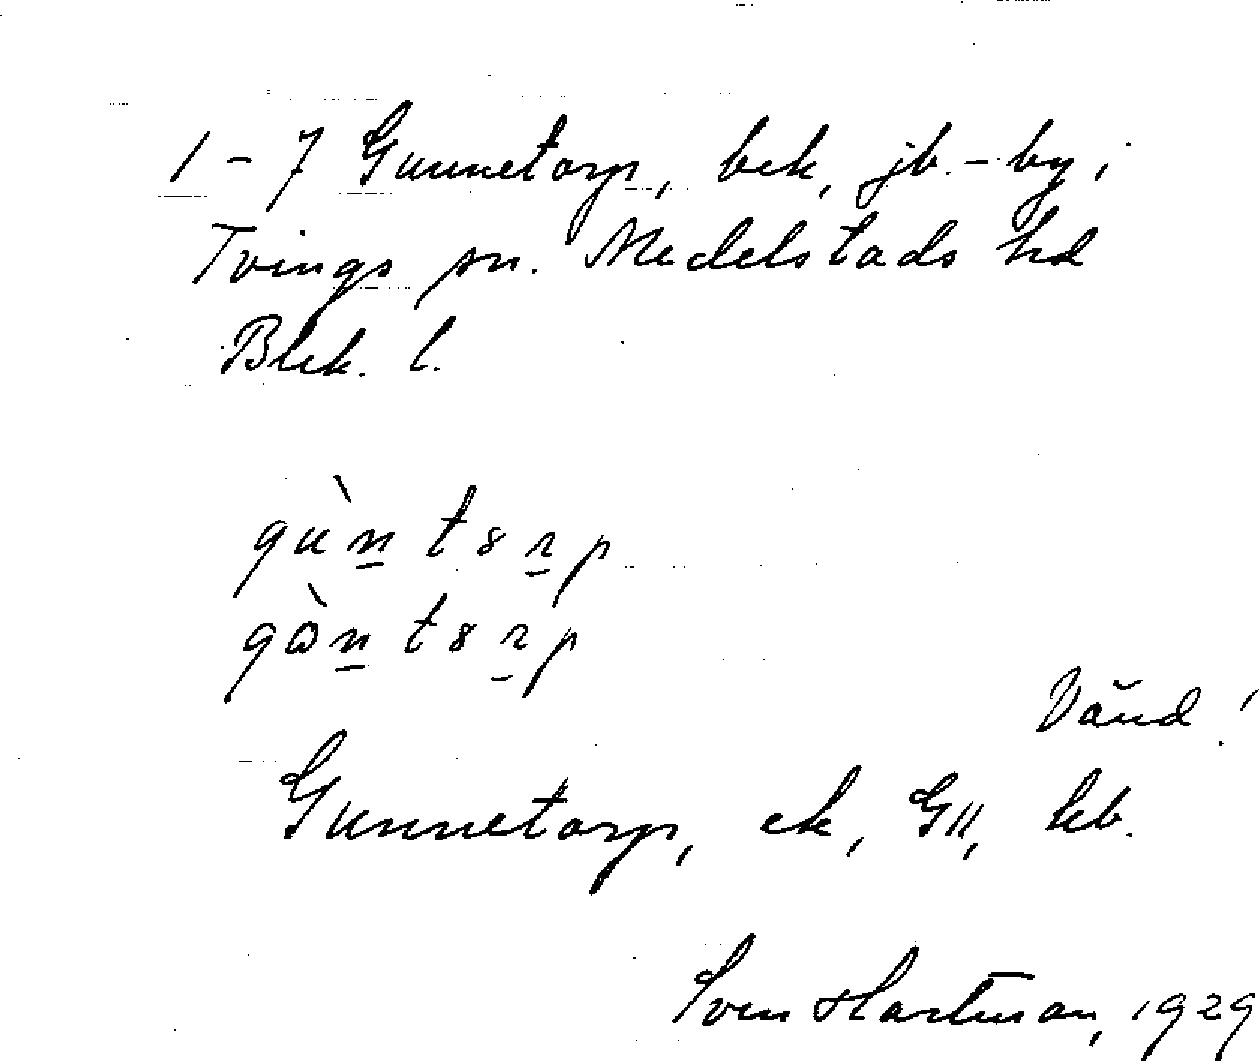 1-7 Gunnetorp, bek, jb.-by i
Tvings sn. Medelstads hd
Blek. l.
Vänd!
Gunnetorp, ek, GK, kb.
Sven Hartman, 1929